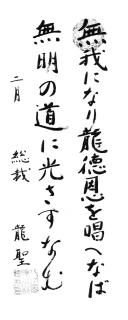 無我になり龍徳恩を唱へなば
無明の道に光さすなむ
二月
総裁
龍聖